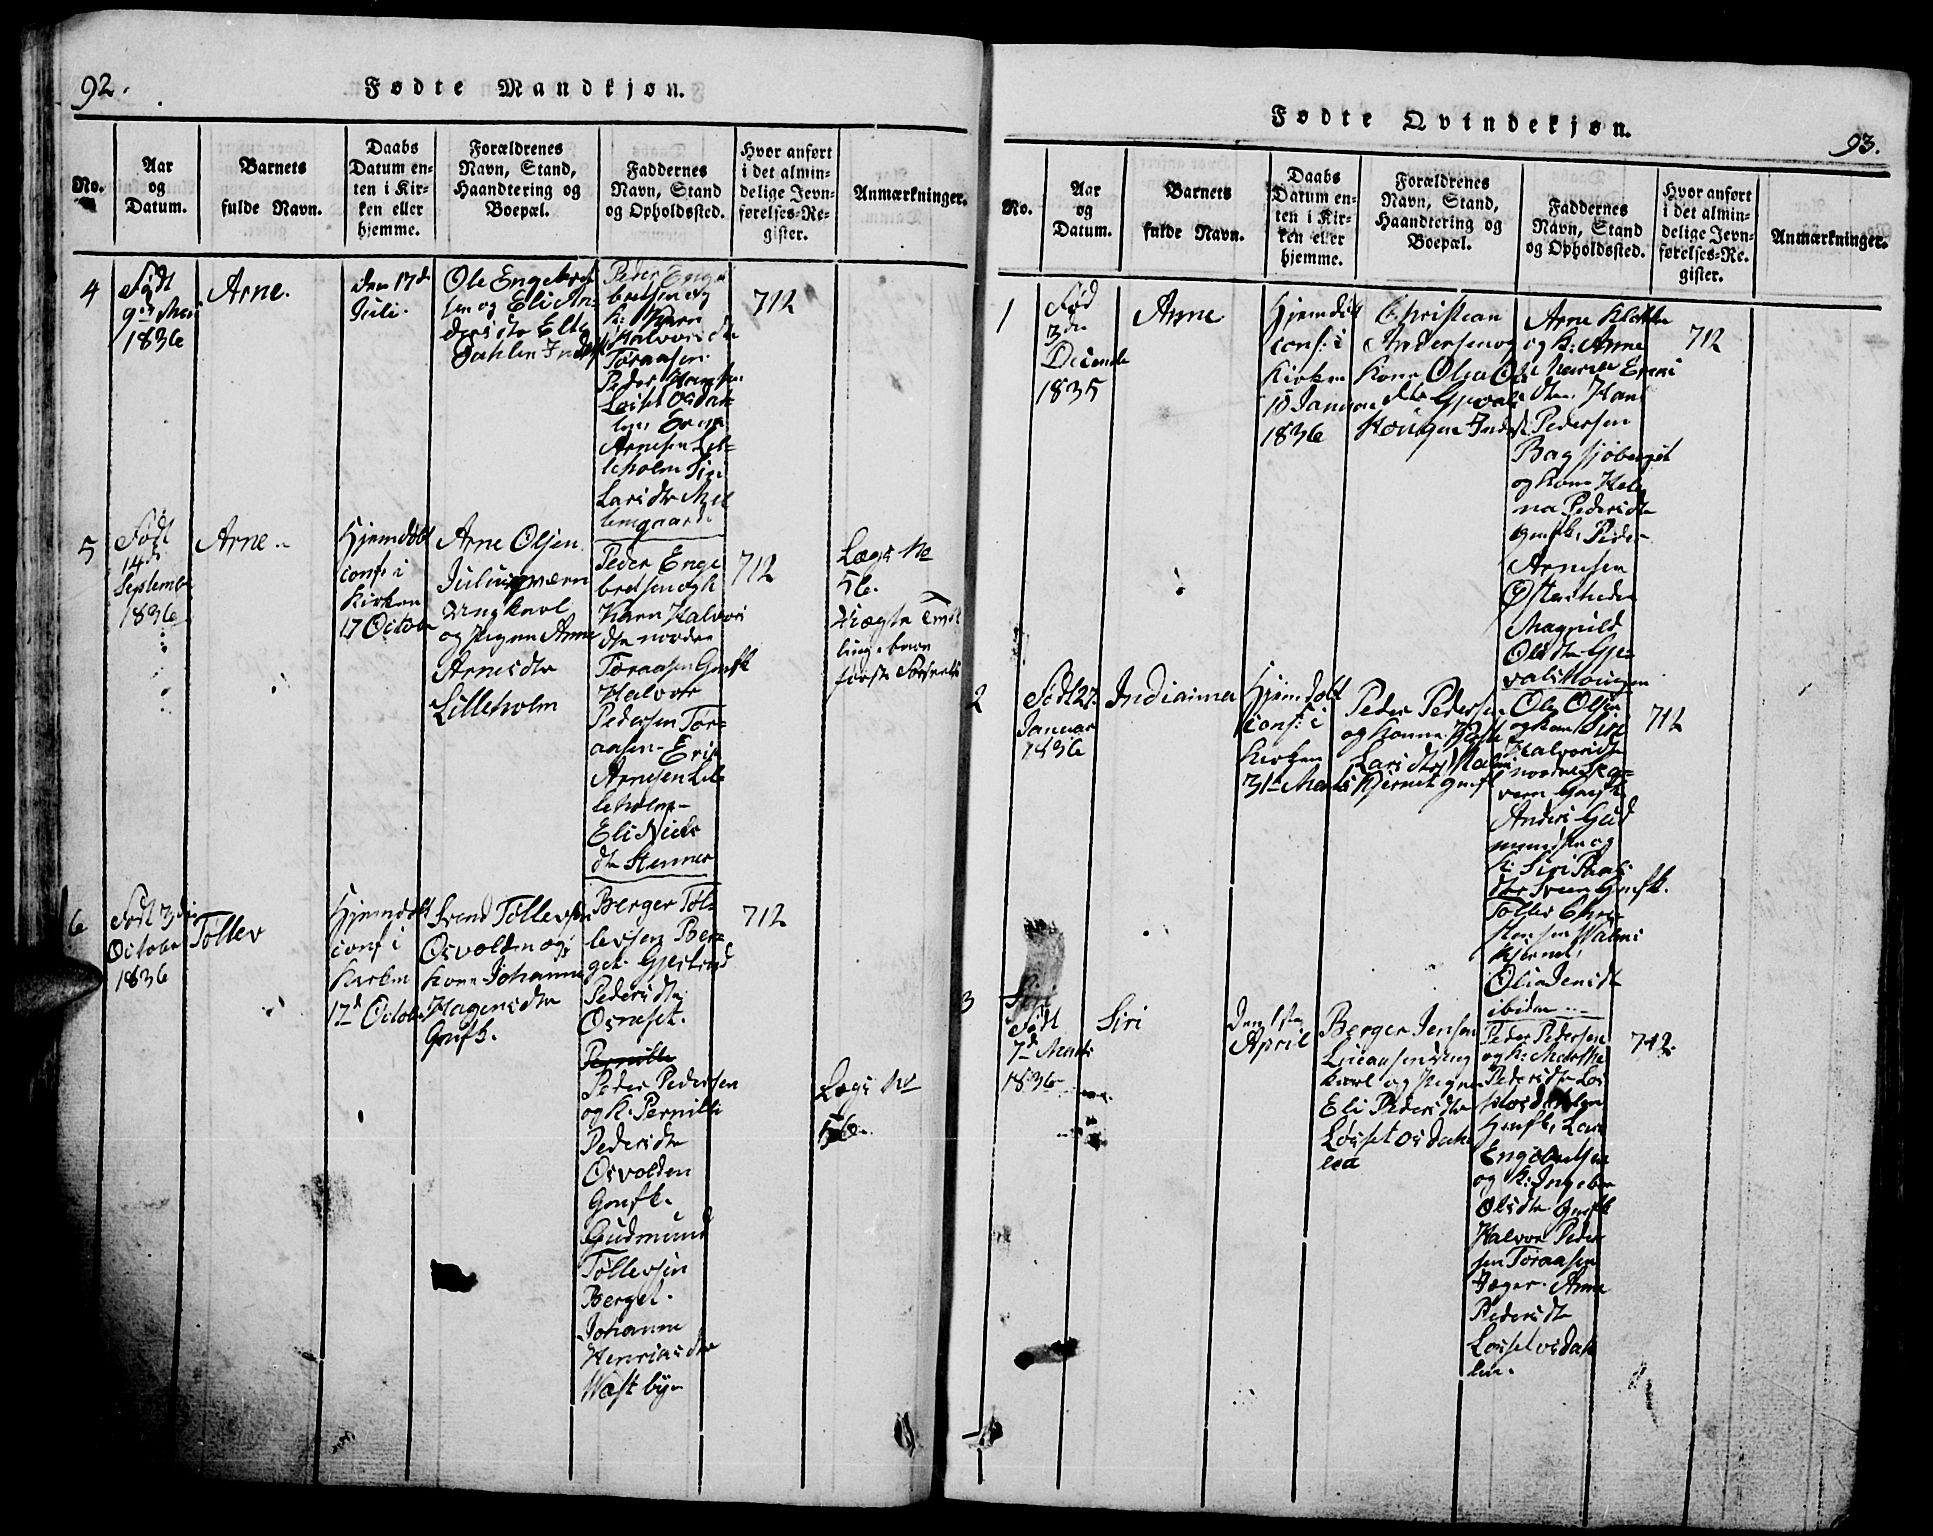 92.
Fødte Mandkjøn.
No.
Aar
og
Datum.
Barnets
fulde Navn.
Daabs
Datum en-
ten i Kir-
ken eller
hjemme.
Forældrenes
Navn, Stand,
Haandtering og
Boepæl.
Faddernes
Navn, Stand
og Opholdssted.
Hvor anført
i det almin-
delige Jevn-
førelses-Re-
gister.
Anmærkninger.
4
Født
9de Mai
1836
Arne.
den 17d
Juli.
Ole Engebret
sen og Eli An-
Dahlen
Peder Enge
bretsen og
k: Karn
Halvorsdtr
Toraasen.
Peder
Løset Osdah-
len,
Arnesen Lil-
leholm Siri
Larsdtr Mel
lemgaard.
712
5
Født
14d
September
1836
Arne.
Hjemdøbt
conf: i
Kirken
17 Octobr
Arne Olsen
Ungkarl
og Pigen Anne
Arnesdtr
Lilleholm
Peder Enge
bretsen og k
Karn Halvors
dtr nordre
Toraasen Gmfk
Halvor
Pedersen Tor-
aasen - Erik
Arnesen Lil
leholm -
Eli Niels
dtr Stenner
712
Lægs No
56.
første
6
Født 3die
October
1836
Tollev
Hjemdøbt
conf: i
Kirken
17d Octobr
Svend Tollevsen
Osvolden og
kone Johanne
Hagensdtr
Gmfk.
Berger Tol-
levsen Ber-
get. Gjertrud
Pedersdtr
Osneset.
Pernille
Peder Pedersen
og k: Pernille
Pedersdtr
Osvolden
Gmfk.
Gudmund
Tollevsen
Berget.
Johanne
Henriksdtr
Westbye
712
Lægs No
56.
93.
Fødte Qvindekjøn.
No.
Aar
og
Datum.
Barnets
fulde Navn.
Daabs
Datum en-
ten i Kir-
ken eller
hjemme.
Forældrenes
Navn, Stand,
Haandtering og
Boepæl.
Faddernes
Navn, Stand
og Opholdssted.
Hvor anført
i det almin-
delige Jevn-
førelses-Re-
gister.
Anmærkninger.
1
Fød
3die
Decembr
1835
Anne
Hjemdøbt
conf: i
Kirken
10 Januar
1836
Christian
Andersen og
Kone Olea Ols
dtr Gjevals
Hougen
Arne
og k: Anne
dtr. Hans
Pedersen
Bagsjøberget
og kone Hele
na Pedersdtr
gmfk, Peder
Arnesen
Østerheden
Magnild
Olsdtr Gje-
valshougen
712
2
Født 27.
Januar
1836
Indianna
Hjemdøbt
conf: i
Kirken
31te Marts
Peder Pedersen
og Konne
Larsdtr Malmi
kjernet gmfk
Ole Olsen
og kone Siri
Halvorsdtr
nordre
Gmfk
Anders Gud
mundsen og
k: Siri
dtr Sveen Gmfk.
Tollev Chri-
stensen Malmi
kjernet,
Olia Jensdtr
ibidm
712
3
Siri
Født
7d Marts
1836
Siri
Den 1ste
April
Berger Jensen
Lueaasen Ung
karl og Pigen
Eli Pedersdtr
Løsset Osdah
len
Peder Pedersen
og k: Marthe
Pedersdtr Løs
set Osdahlen
Gmfk, Lars
Engebretsen
og k: Ingebor
Olsdtr Gmfk
Halvor Peder
sen Toraasen
Jæger. Anne
Pedersdtr
Løsset osdah
len.
712.